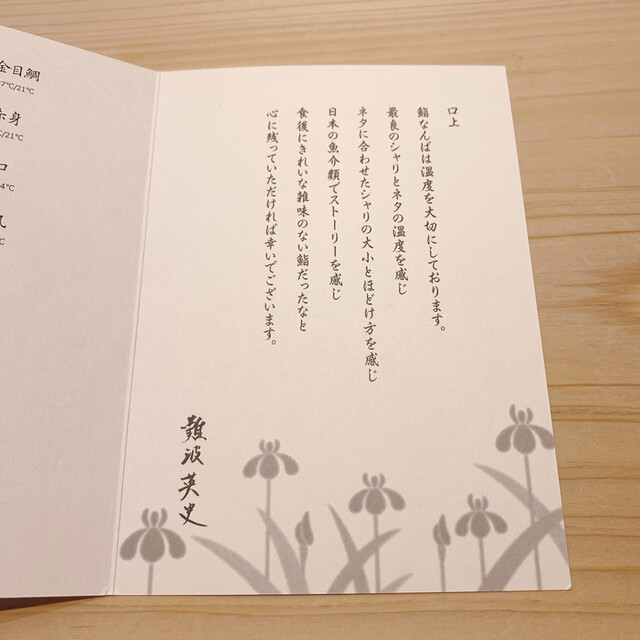 口上
鮨なんばは温度を大切にしております。
最良のシャリとネタの温度を感じ
ネタに合わせたシャリの大小とほどけ方を感じ
日本の魚介類でストーリーを感じ
食後にきれいな雑味のない鮨だったなと
心に残っていただければ幸いでございます。
難波英史
金目鯛
7℃/21℃
赤身
℃/21℃
4℃
℃